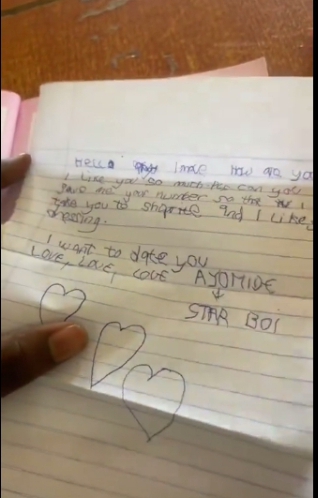 Hello Imole How are you
I Like you so much can you
Save me your number so that I
take you to shoprite and I Like
dressing.
I want to date you
LOVE, LOVE, LOVE AYOMIDE
STAR BOI